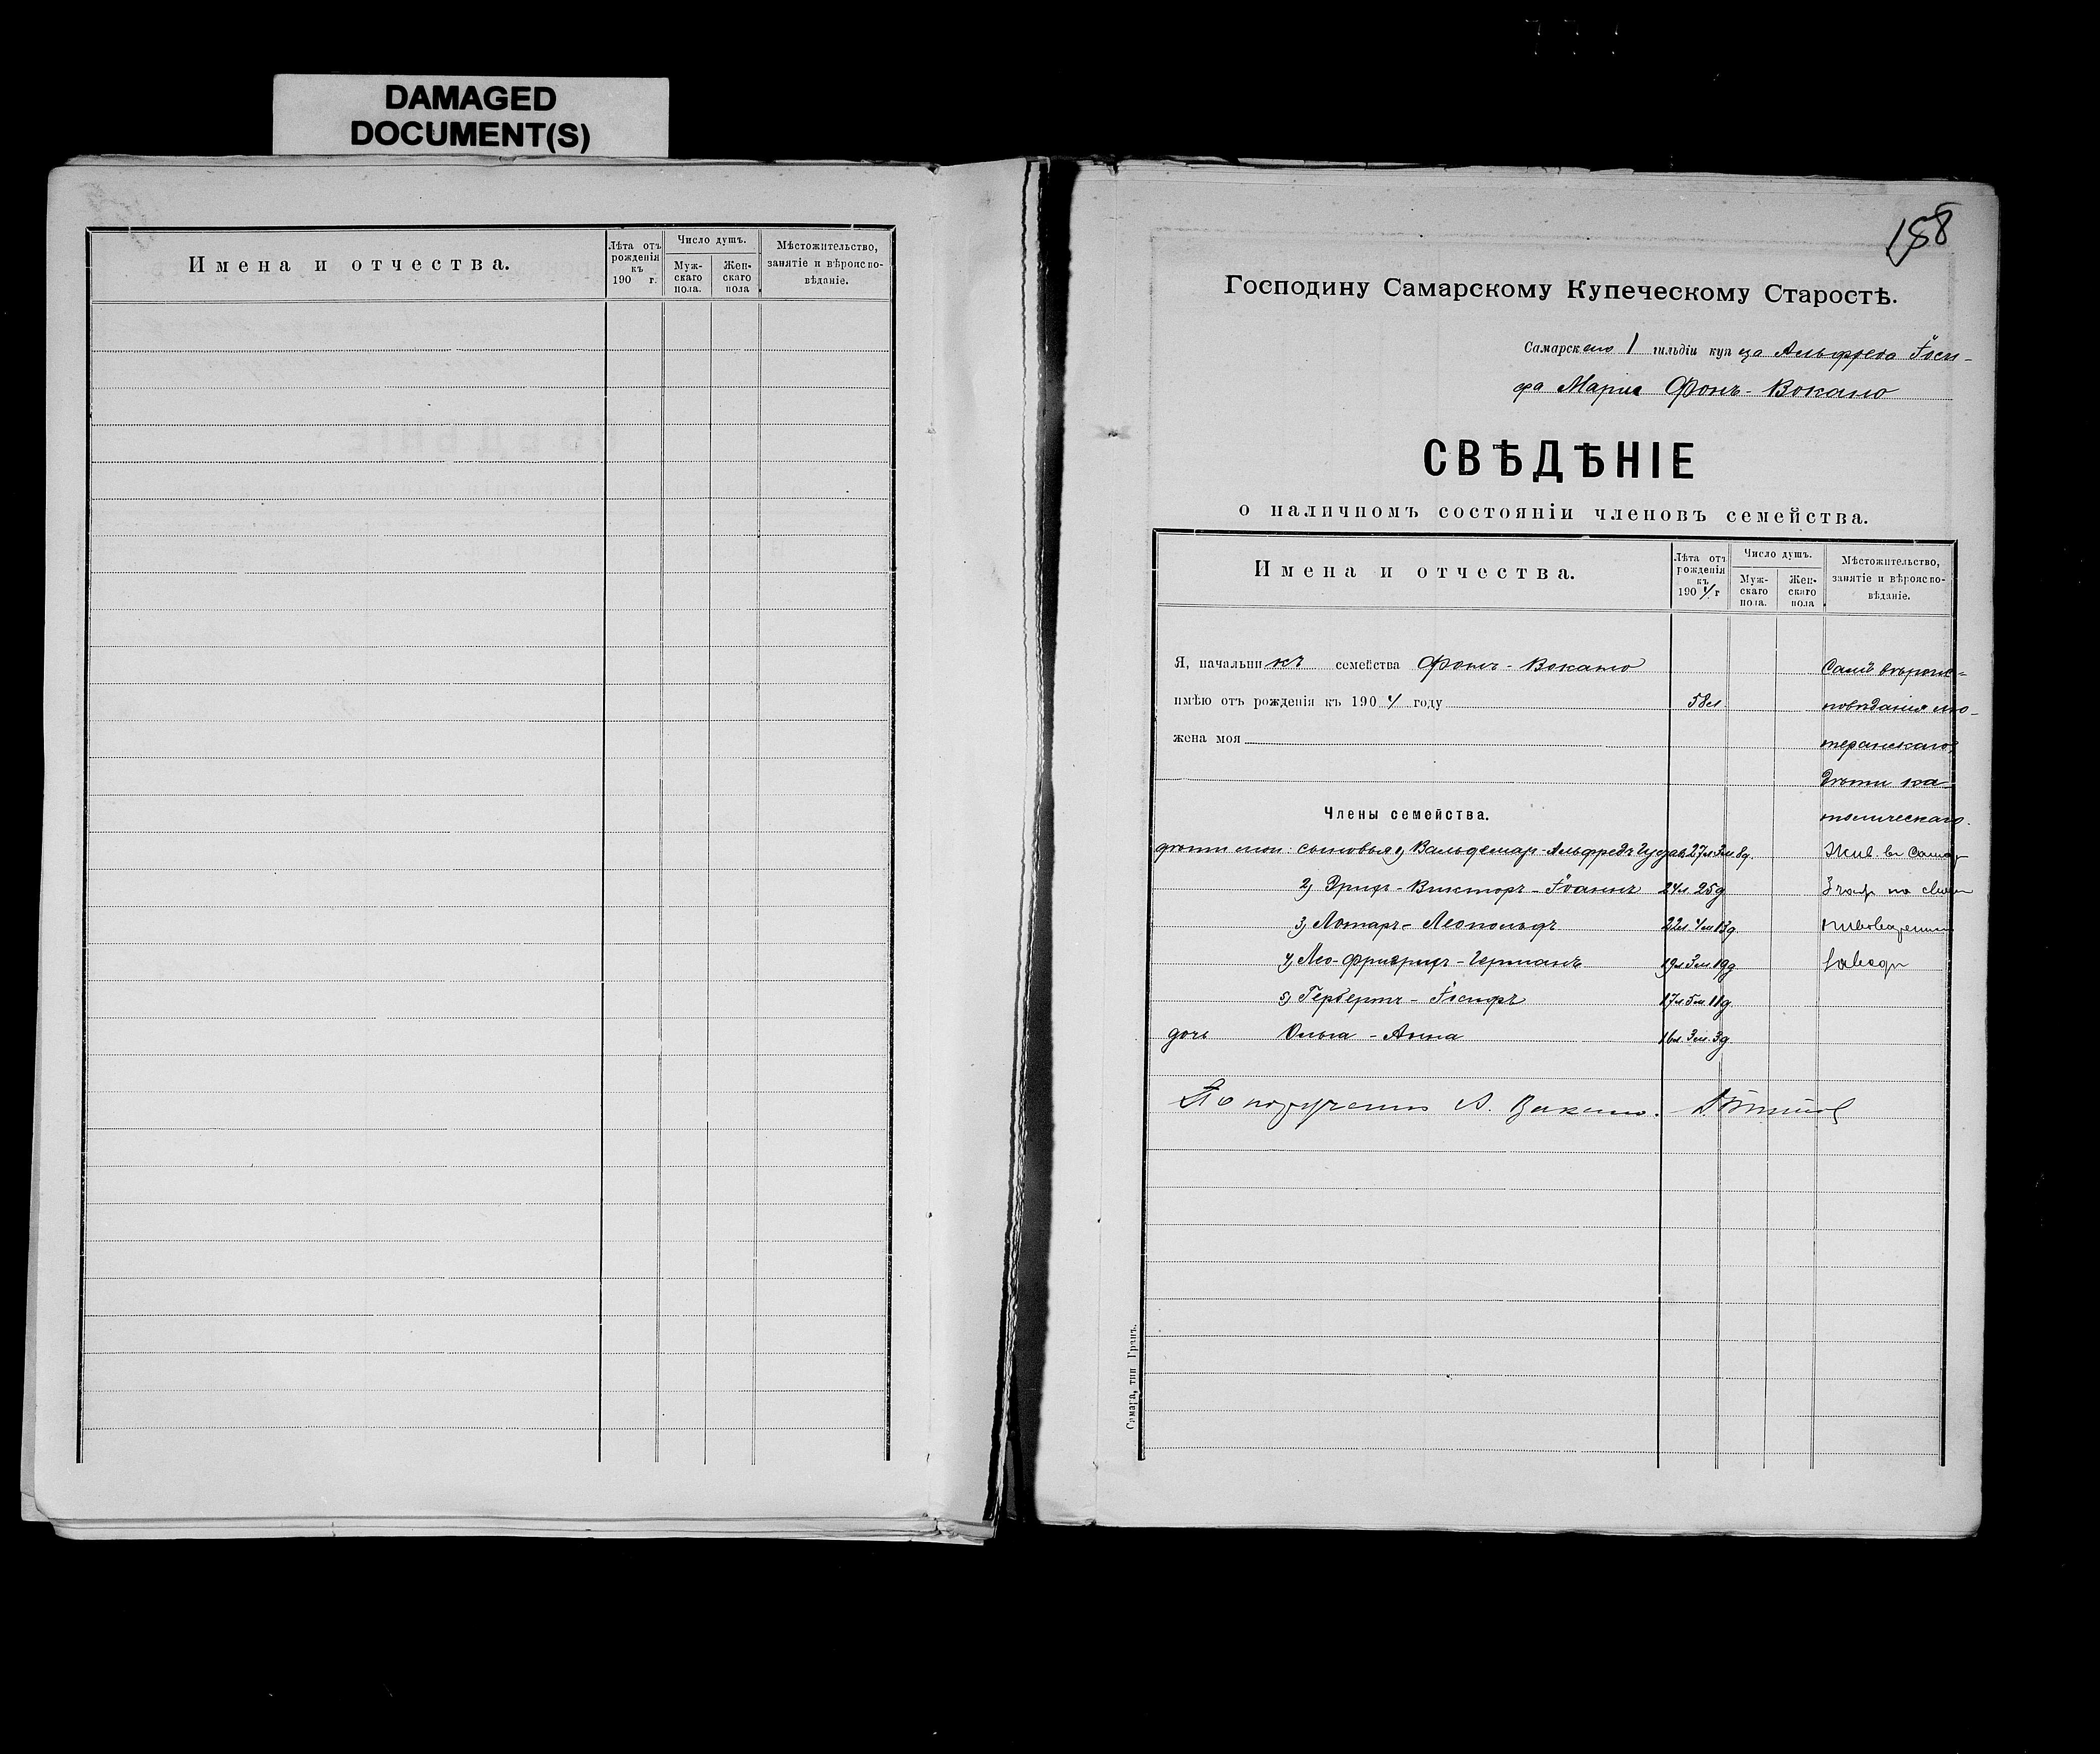 DAMAGED
DOCUMENT(S)
Имена и отчества.
Лѣта отъ рожденія къ 190 г.
Число душъ.
Мужскаго пола.
Женскаго пола
Мѣстожительство, занятіе и вѣроисповѣданіе.
188
Господину Самарскому Купеческому Старостѣ.
Самарскаго 1 гильдіи купца Альфреда Іоси-
фа Марія Фонъ-Вокано
СВѢДѢНІЕ
о наличномъ состояніи членовъ семейства.
Имена и отчества.
Лѣта отъ рожденія къ 1904 г
Число душъ.
Мужскаго пола.
Женскаго пола
Мѣстожительство, занятіе и вѣроисповѣданіе.
Я, начальникъ семейства Фонъ-Вокано
Самъ вѣроис-
имѣю отъ рожденія къ 1904 году 58 л.
повѣданія лю-
жена моя
теранскаго,
Дѣти ка-
Члены семейства.
толическаго.
дѣти мои: сыновья 1) Вальдемаръ-Альфредъ 27 л. 3 м. 8 д.
Жив. въ Самар
2) Эрихъ-Викторъ-Іоаннъ 24 л. 25 д.
3 части на своем
3) Лотаръ-Леопольдъ 22 л. 4 м 13 д.
пивоваренном
4) Лео-Фридрихъ-Германъ 19 л. 3 м. 19 д.
заводѣ
5) Гербертъ-Іосифъ 17 л. 5 м. 11 д.
дочь Ольга-Анна 16 л. 3 м. 3 д.
По порученію А. Вокано.
Самара, тип Гранъ.